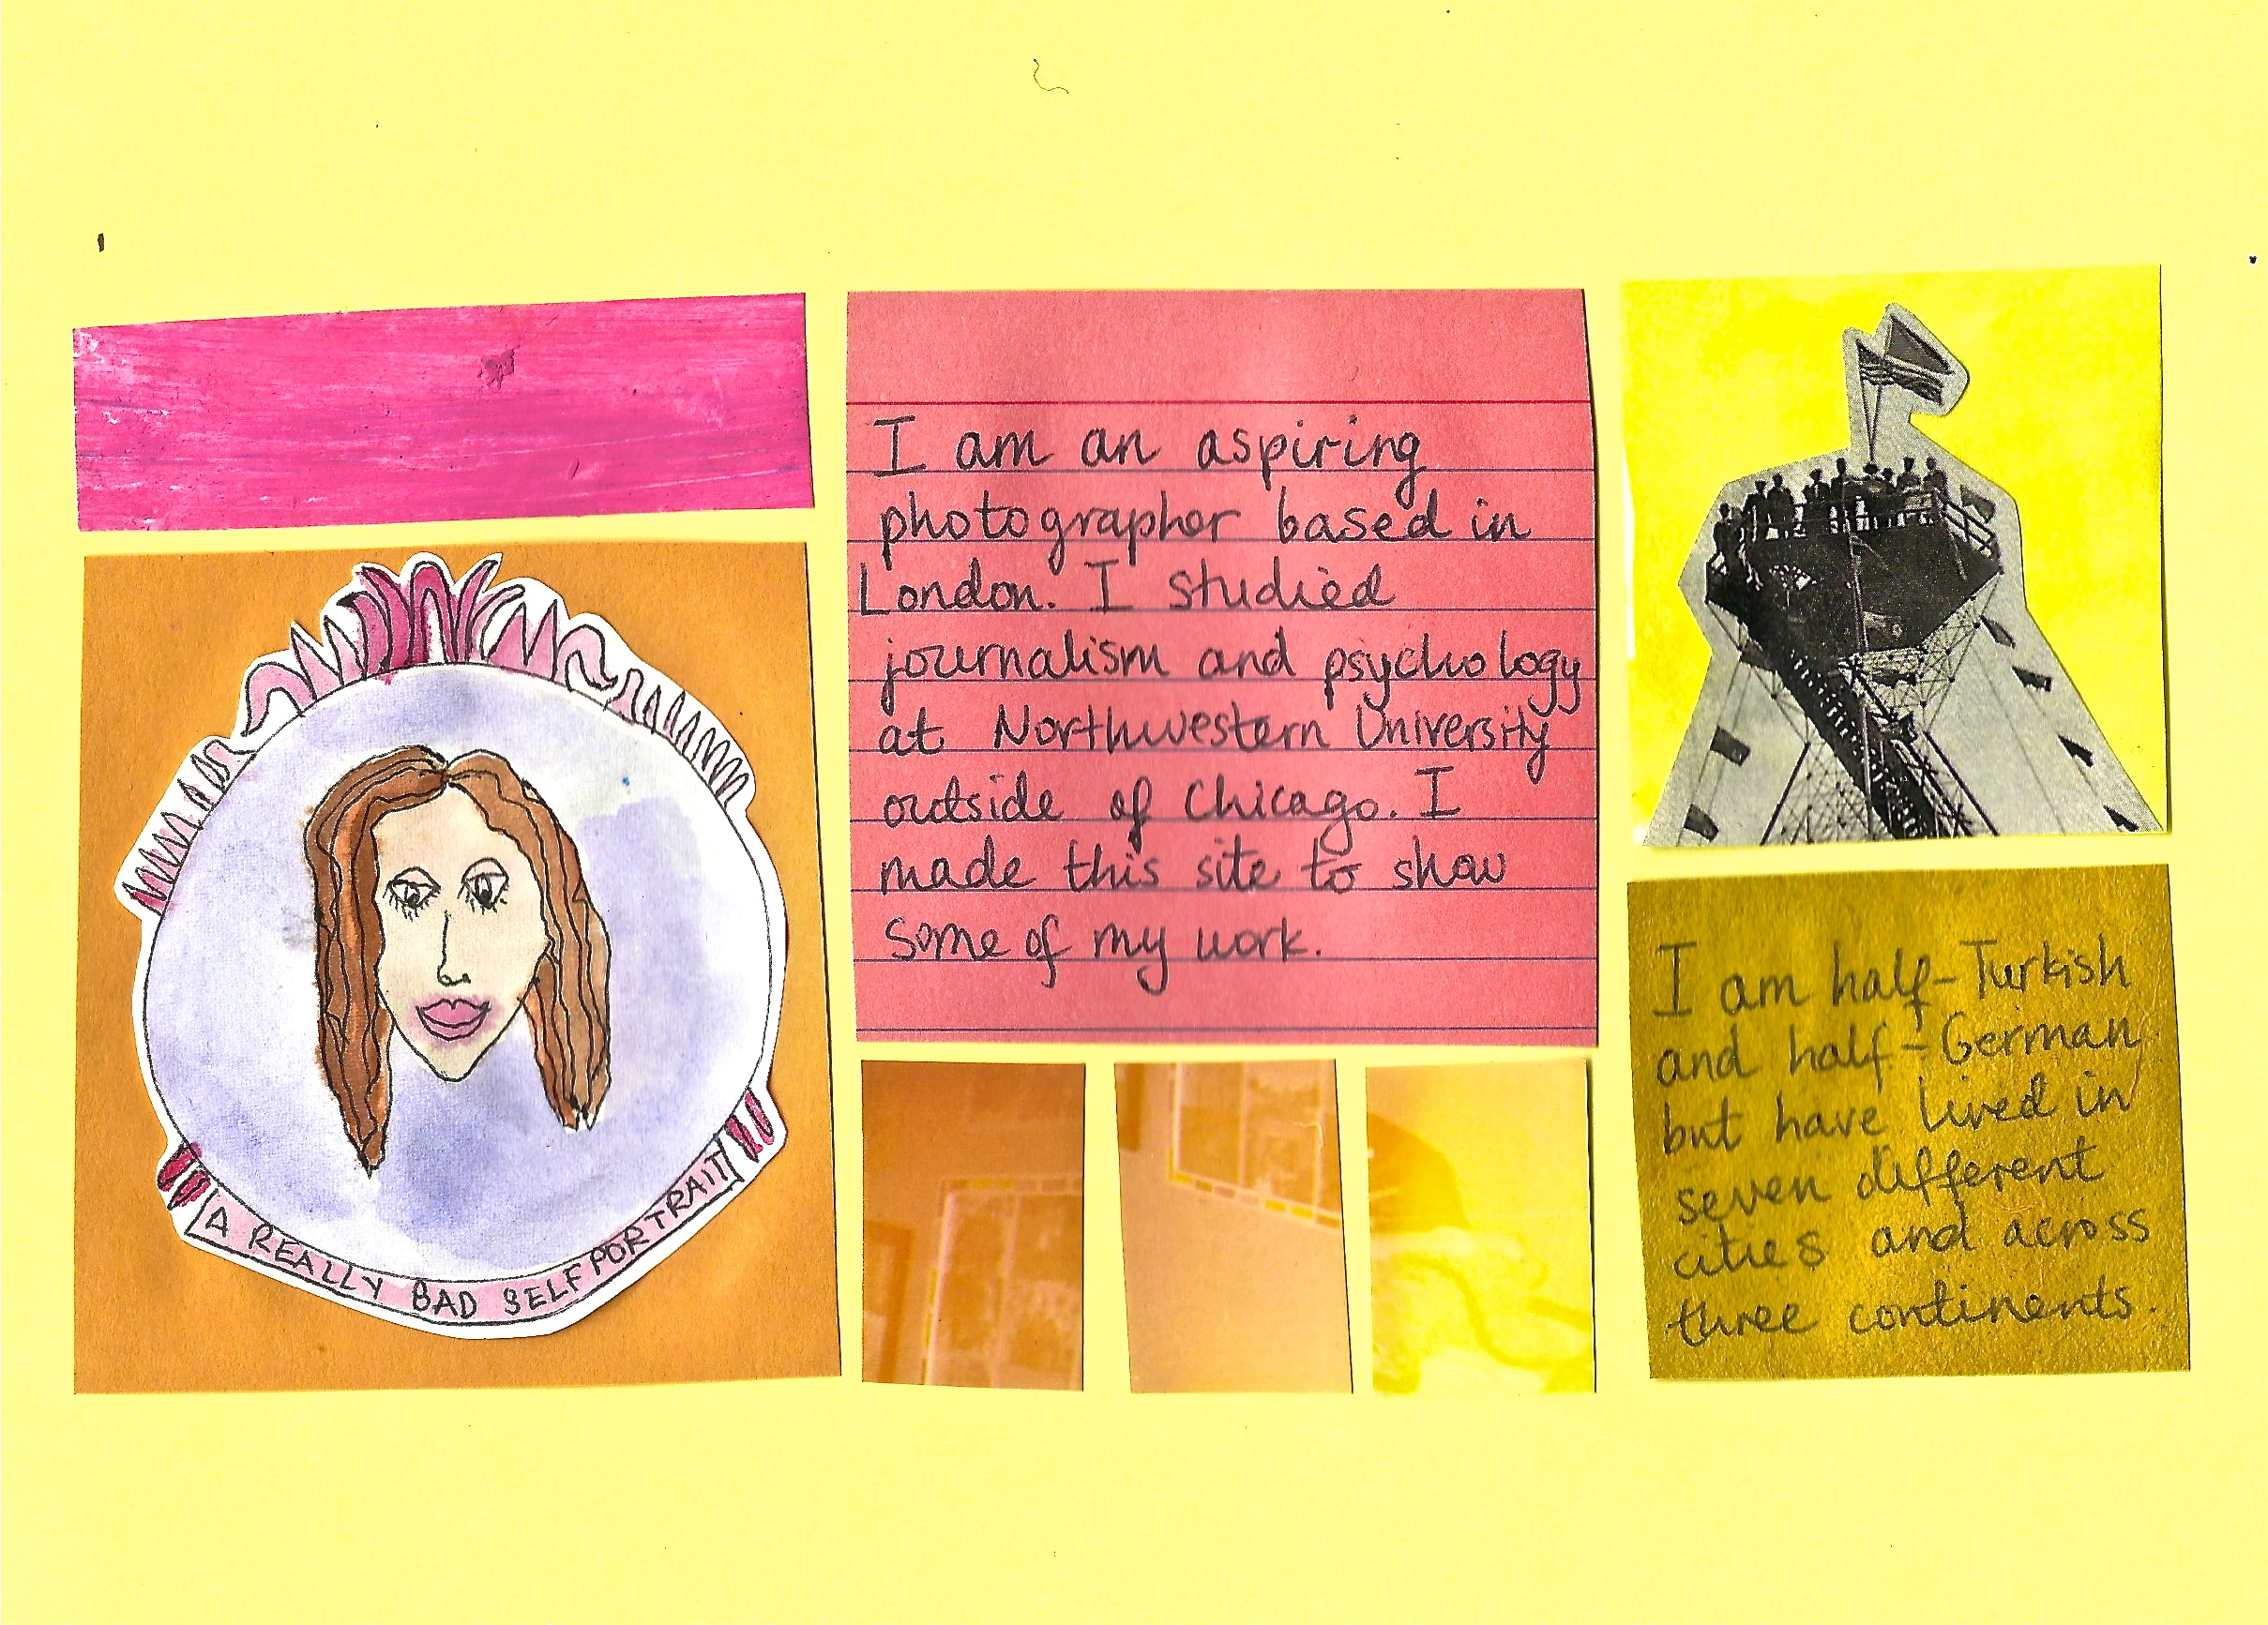 A REALLY BAD SELFPORTRAIT
I am an aspiring
photographer based in
London. I studied
journalism and psychology
at Northwestern University
outside of Chicago. I
made this site to show
some of my work.
I am half-Turkish
and half-German
but have lived in
seven different
cities and across
three continents.